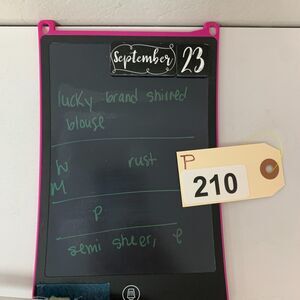 September 23
lucky brand shirred
blouse
W rust
M
P
210
P
semi sheer, e